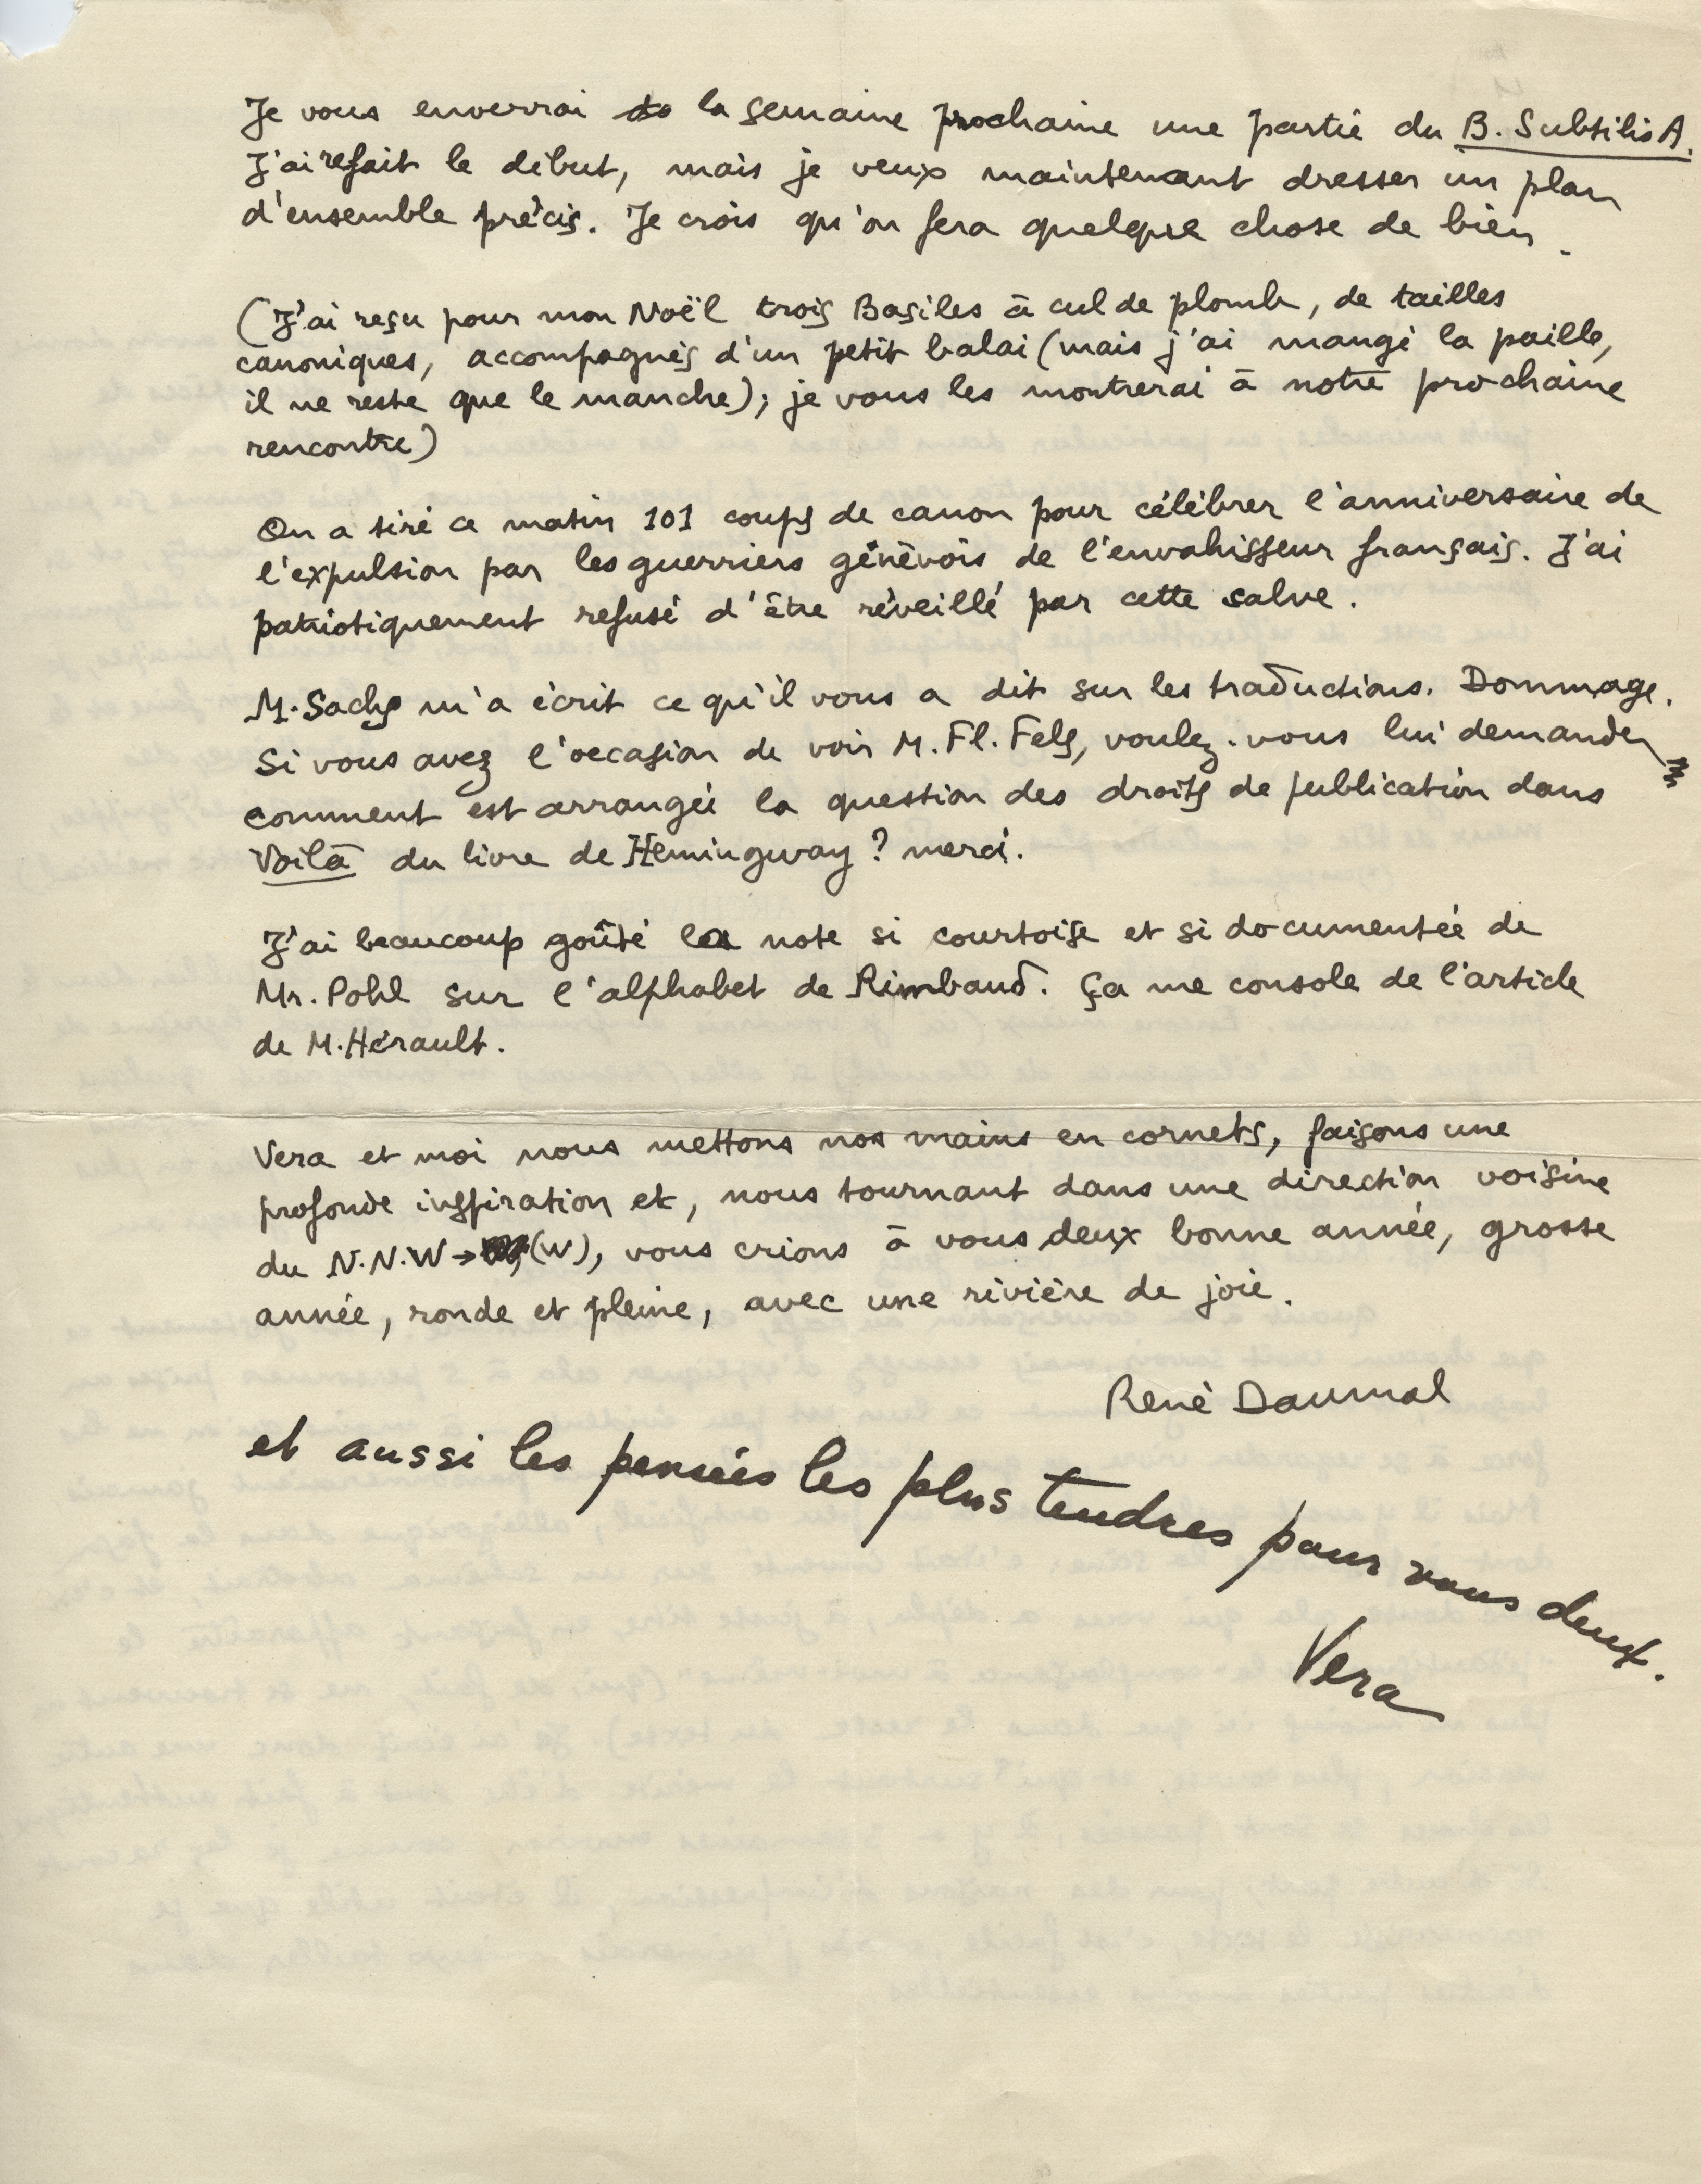 Je vous enverrai la semaine prochaine une partie du B. Subtilis A.
J'ai refait le début, mais je veux maintenant dresser un plan
d'ensemble précis. Je crois qu'on fera quelque chose de bien.
(J'ai reçu pour mon Noël trois Basiles à cul de plomb, de tailles
canoniques, accompagnés d'un petit balai (mais j'ai mangé la paille,
il ne reste que le manche); je vous les montrerai à notre prochaine
rencontre)
On a tiré ce matin 101 coups de canon pour célébrer l'anniversaire de
l'expulsion par les guerriers génévois de l'envahisseur français. J'ai
patriotiquement refusé d'être réveillé par cette salve.
M. Sachs m'a écrit ce qu'il vous a dit sur les traductions. Dommage.
Si vous avez l'occasion de voir M. Fl. Fels, voulez-vous lui demander
comment est arrangée la question des droits de publication dans
Voilà du livre de Hemingway ? merci.
J'ai beaucoup goûté la note si courtoise et si documentée de
Mr. Pohl sur l'alphabet de Rimbaud. Ça me console de l'article
de M. Hérault.
Vera et moi nous mettons nos mains en cornets, faisons une
profonde inspiration et, nous tournant dans une direction voisine
du N.N.W → (W), vous crions à vous deux bonne année, grosse
année, ronde et pleine, avec une rivière de joie.
René Daumal
et aussi les pensées les plus tendres pour vous deux.
Vera